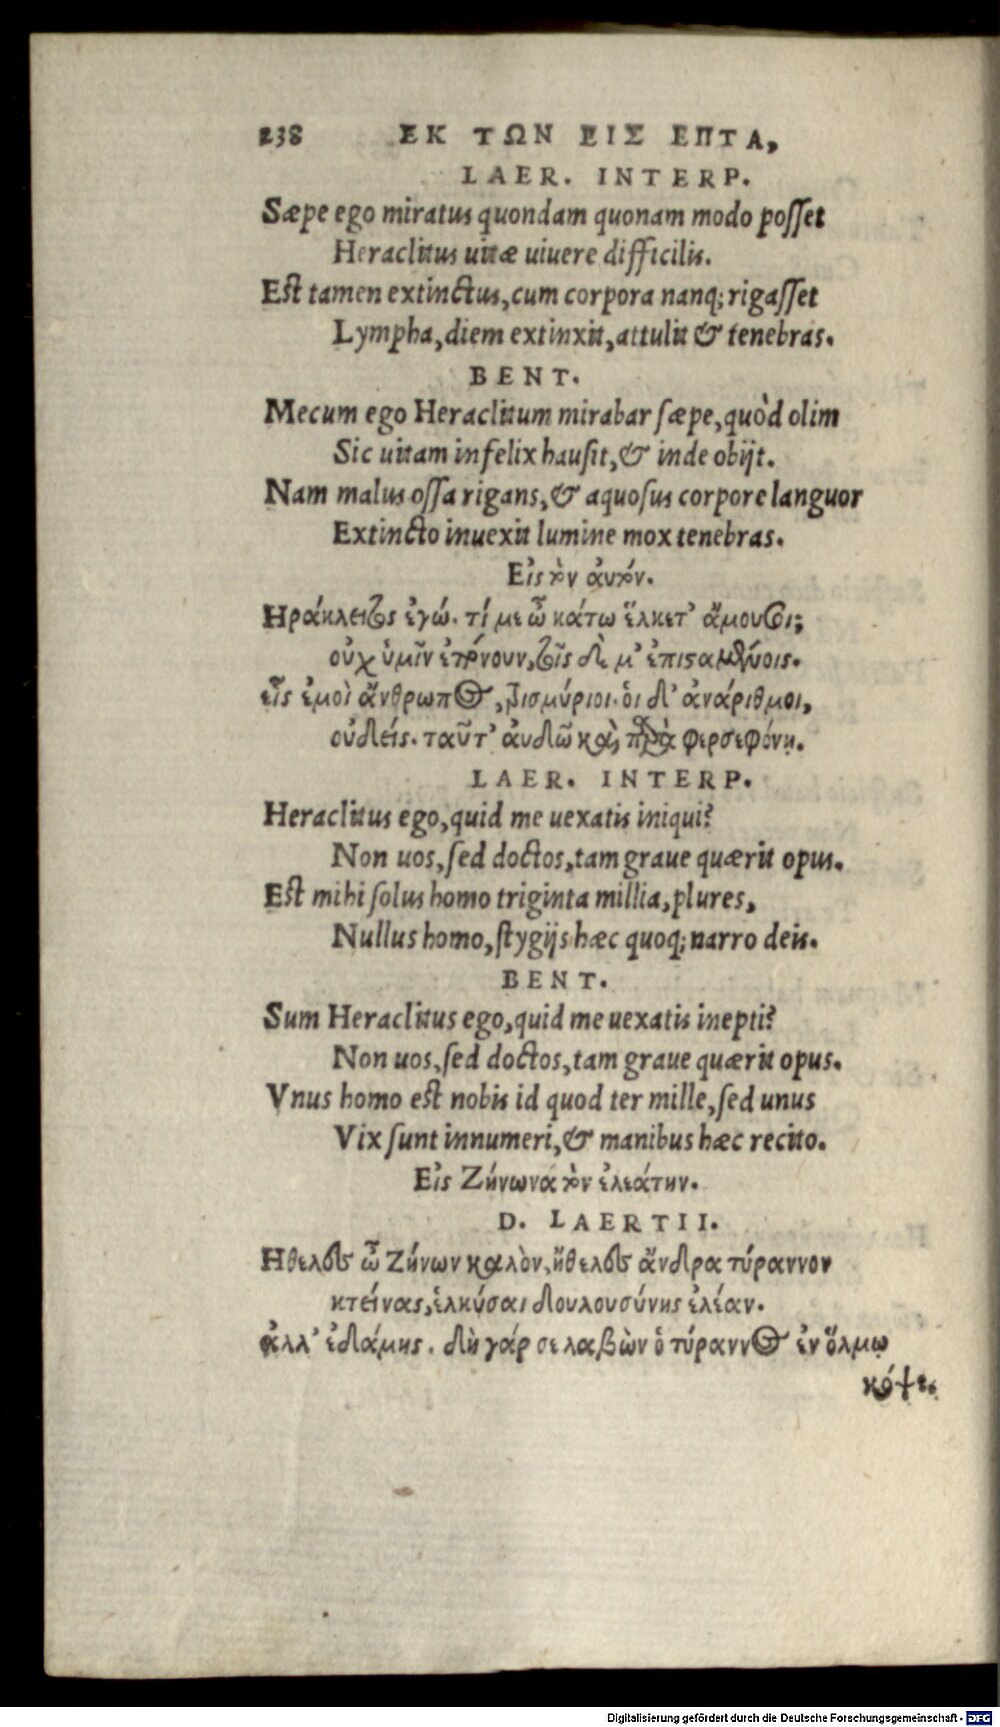 238 ΕΚ ΤΩΝ ΕΙΣ ΕΠΤΑ,
LAER. INTERP.
Sæpe ego miratus quondam quonam modo posset
Heraclitus uitæ uiuere difficilis.
Est tamen extinctus, cum corpora nanq; rigasset
Lympha, diem extinxit, attulit & tenebras.
BENT.
Mecum ego Heraclitum mirabar sæpe, quòd olim
Sic uitam infelix hausit, & inde obijt.
Nam malus ossa rigans, & aquosus corpore languor
Extincto inuexit lumine mox tenebras.
Εἰς τὸν ἀυτόν.
Ηράκλειτος ἐγώ. τί με ὦ κάτω ἕλκετ' ἄμουσοι;
οὐχ ὑμῖν ἐπόνουν, τοῖς δέ μ' ἐπισταμένοις.
εἷς ἐμοὶ ἄνθρωπος, τρισμύριοι. ὁι δ' ἀνάριθμοι,
οὐδείς. ταῦτ' ἀυδῶ καὶ παρὰ φερσεφόνῃ.
LAER. INTERP.
Heraclitus ego, quid me uexatis iniqui?
Non uos, sed doctos, tam graue quærit opus.
Est mihi solus homo triginta millia, plures,
Nullus homo, stygijs hæc quoq; narro deis.
BENT.
Sum Heraclitus ego, quid me uexatis inepti?
Non uos, sed doctos, tam graue quærit opus.
Vnus homo est nobis id quod ter mille, sed unus
Vix sunt innumeri, & manibus hæc recito.
Εἰς Ζήνωνα τὸν ἐλεάτην.
D. LAERTII.
Ηθελες ὦ Ζήνων καλὸν, ἤθελες ἄνδρα τύραννον
κτείνας, ἑλκύσαι δουλουσύνης ἐλέαν.
ἀλλ' ἐδάμης. δὴ γάρ σε λαβὼν ὁ τύραννος ἐν ὅλμῳ
κόψε.
Digitalisierung gefördert durch die Deutsche Forschungsgemeinschaft - DFG